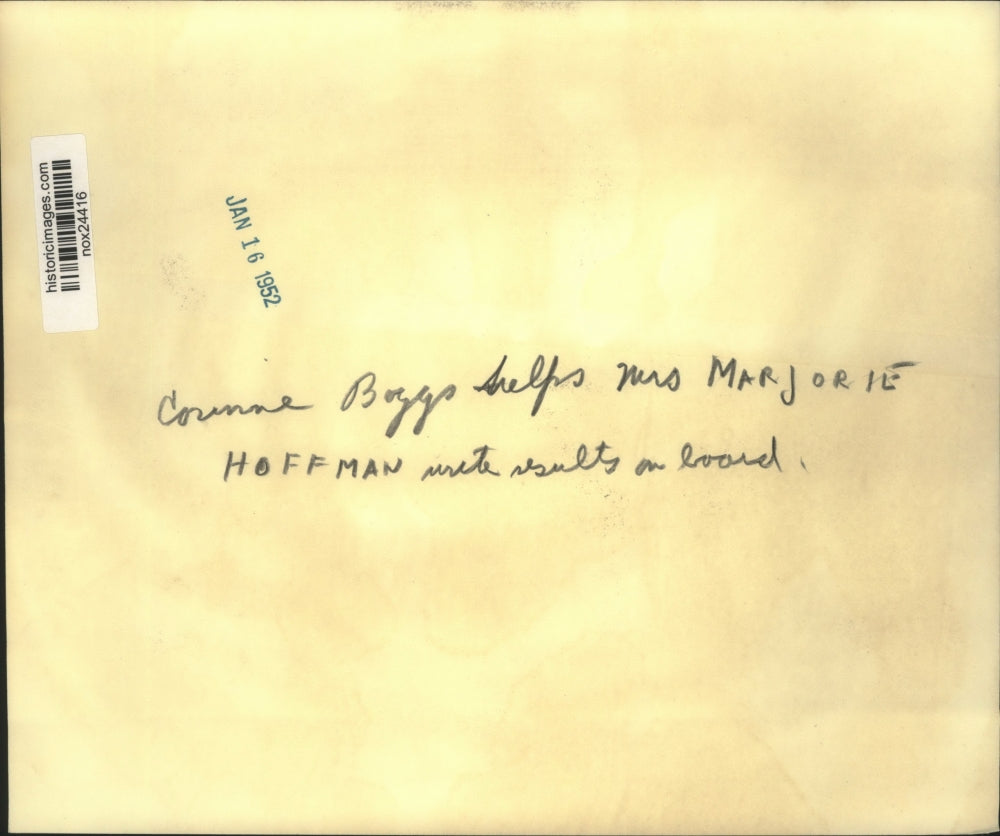 historicimages.com
nox24416
JAN 16 1952
Corinne Boggs helps Mrs MARJORIE
HOFFMAN write results on board.